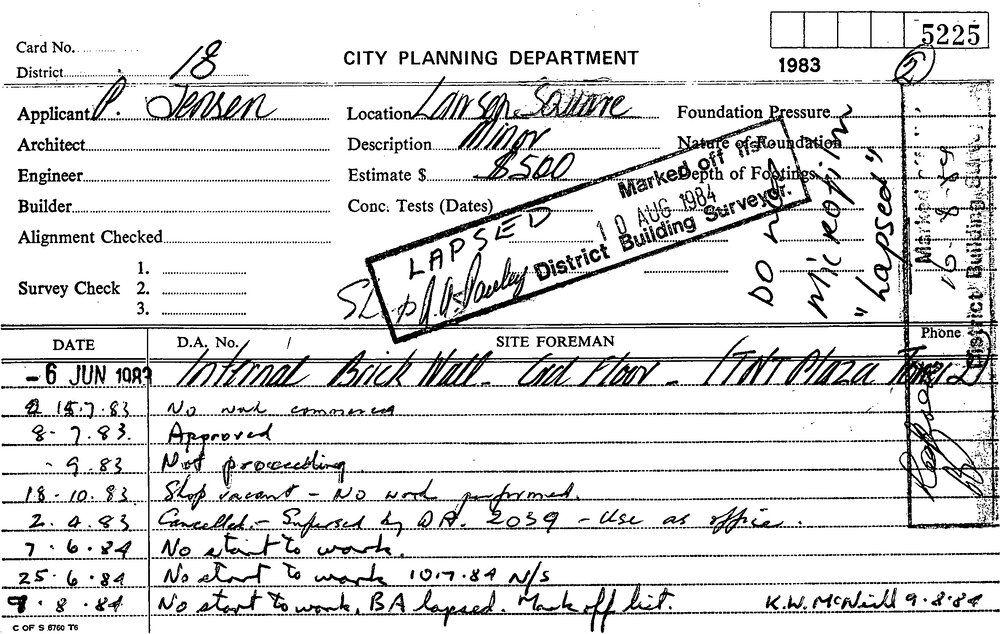 5225
Card No.
District 18
CITY PLANNING DEPARTMENT
1983
Applicant P. Jensen
Location Lawson Square
Foundation Pressure
Architect
Description Minor
Nature of Foundation
Engineer
Estimate $ $500
Depth of Footings
Builder
Conc. Tests (Dates)
Alignment Checked
Survey Check
1.
2.
3.
LAPSED
Marked off
10 AUG 1984
District Building Surveyor.
DO
Microfilm
"Lapsed"
Marked
16-8-84
District Building Surv
DATE
D.A. No.
SITE FOREMAN
Phone
-6 JUN 1983 Internal Brick Wall - Grd Floor - (TNT Plaza Tower 2)
15.7.83 No work commenced
8-7.83. Approved
-9.83 Not proceeding
18-10.83 Shop vacant - No work performed.
2.4.83 Cancelled - Supersed by DA. 2039 - Use as office.
7.6.84 No start to work.
25.6.84 No start to work 10.7.84 N/S
9.8.84 No start to work. BA lapsed. Mark off list. K.W. McNeill 9.8.84
C OF S 6760 T6